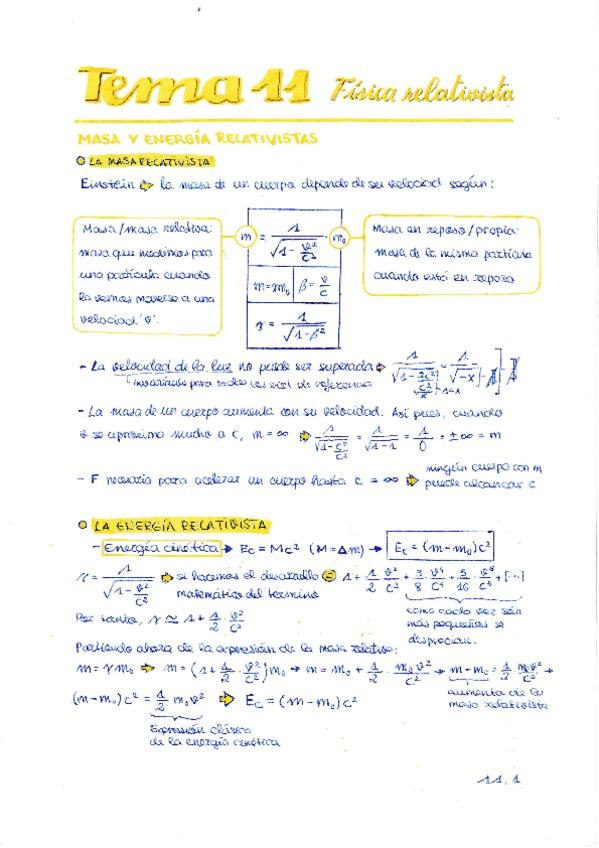 Tema 11 Física relativista
MASA Y ENERGÍA RELATIVISTAS
LA MASA RELATIVISTA
Einstein ⇒ la masa de un cuerpo depende de su velocidad según:
Masa/masa relativa:
masa que medimos para
una partícula cuando
la vemos moverse a una
velocidad 'v'.
m = 1/√(1 - v²/c²) m₀
m = γm₀ β = v/c
γ = 1/√(1-β²)
masa en reposo/propia:
masa de la misma partícula
cuando está en reposo
- La velocidad de la luz no puede ser superada ⇒ 1/√(1 - 2c²/c²) = 1/√(-x)
invariante para todos
- La masa de un cuerpo aumenta con su velocidad. Así pues, cuando
v se aproxima mucho a c, m = ∞ ⇒ 1/√(1 - c²/c²) = 1/√(1-1) = 1/0 = ±∞ = m
- F necesaria para acelerar un cuerpo hasta c = ∞ ⇒ ningún cuerpo con m
puede alcanzar c
LA ENERGÍA RELATIVISTA
- Energía cinética → Ec = Mc² (M = Δm) → Ec = (m - m₀)c²
γ = 1/√(1 - v²/c²) ⇒ si hacemos el desarrollo = 1 + 1/2 · v²/c² + 3/8 · v⁴/c⁴ + 5/16 · v⁶/c⁶ + [...]
matemático del término
como cada vez son
más pequeños se
desprecian.
Por tanto, γ ≃ 1 + 1/2 · v²/c²
Partiendo ahora de la expresión de la masa relativa:
m = γm₀ ⇒ m = (1 + 1/2 · v²/c²)m₀ → m = m₀ + 1/2 · m₀v²/c² → m - m₀ = 1/2 · m₀v²
aumento de la
masa relativista
(m - m₀)c² = 1/2 m₀v² ⇒ Ec = (m - m₀)c²
Expresión clásica
de la energía cinética
11.1